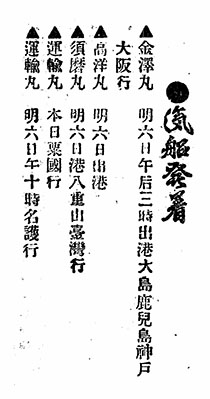 ●汽船發着
▲金澤丸 明六日午后三時出港大島鹿兒島神戸
大阪行
▲高洋丸 明六日出港
▲須磨丸 明六日港八重山臺灣行
▲運輸丸 本日粟國行
▲運輸丸 明六日午十時名護行